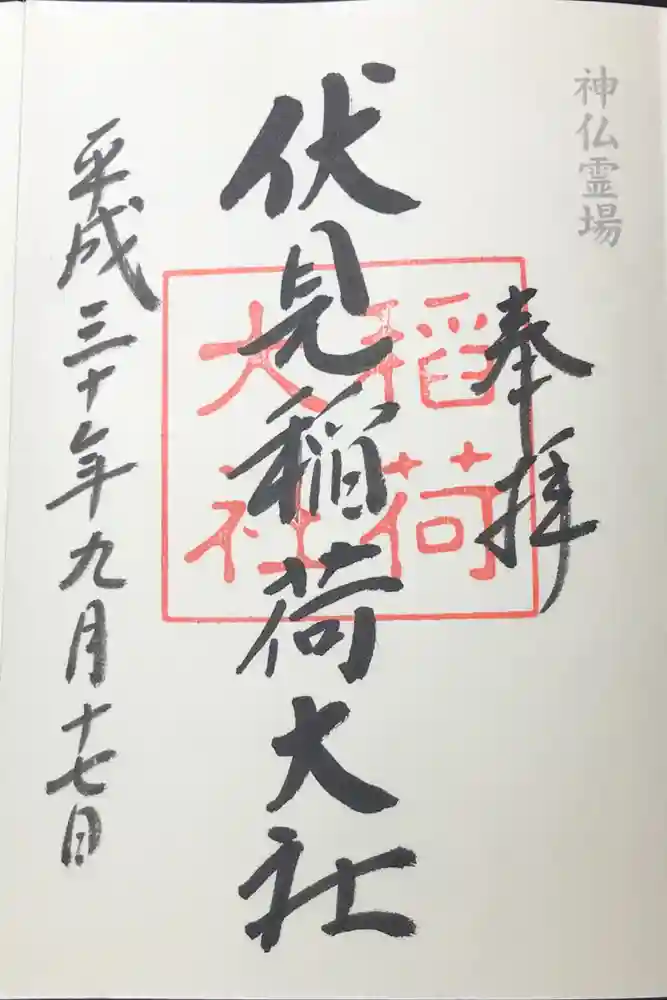 神仏霊場
奉拝
伏見稲荷大社
稲荷
大社
平成三十年九月十七日